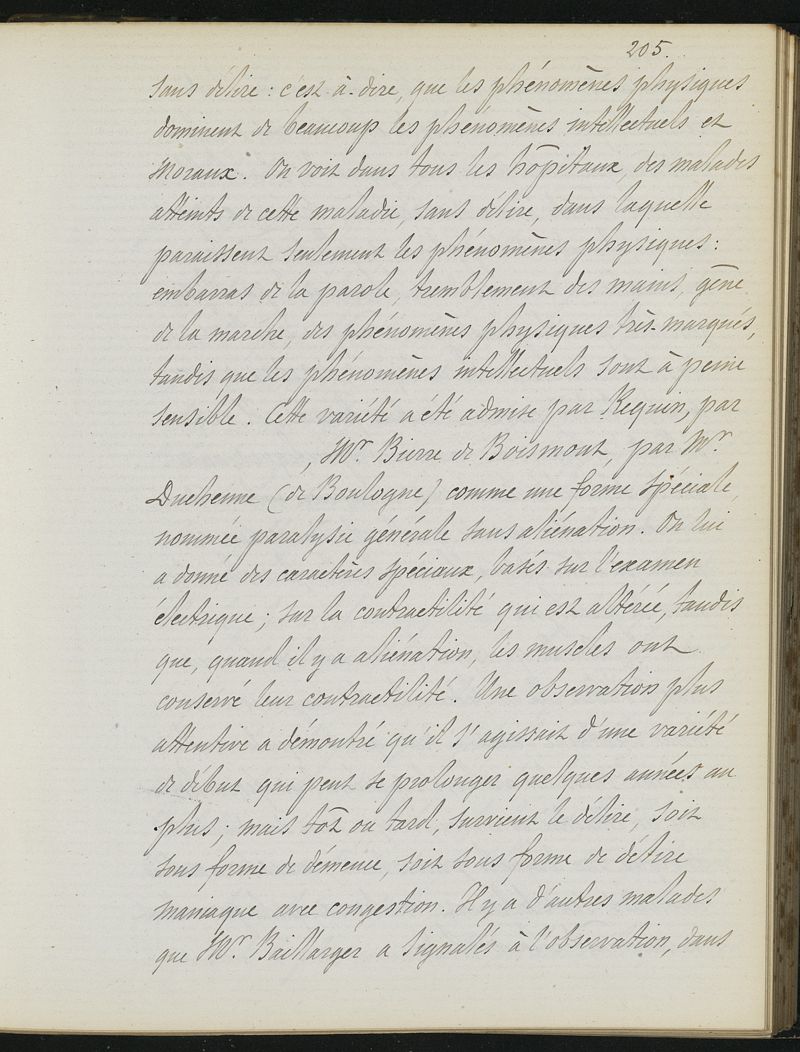 205.
sans délire : c'est à-dire, que les phénomènes physiques
dominent de beaucoup les phénomènes intellectuels et
moraux. On voit dans tous les hôpitaux, des malades
atteints de cette maladie, sans délire, dans laquelle
paraissent seulement les phénomènes physiques :
embarras de la parole, tremblement des mains, gêne
de la marche, des phénomènes physiques très-marqués,
tandis que les phénomènes intellectuels sont à peine
sensible. Cette variété a été admise par Requin, par
, Mr. Bierre de Boismont, par Mr.
Duchenne (de Boulogne) comme une forme spéciale,
nommée paralysie générale sans aliénation. On lui
a donné des caractères spéciaux, basés sur l'examen
électrique ; sur la contractilité qui est altérée, tandis
que, quand il y a aliénation, les muscles ont
conservé leur contractilité. Une observation plus
attentive a démontré qu'il s'agissait d'une variété
de début qui peut se prolonger quelques années au
plus ; mais tôt ou tard, survient le délire, soit
sous forme de démence, soit sous forme de délire
maniaque avec congestion. Il y a d'autres malades
que Mr. Baillarger a signalés à l'observation, dans